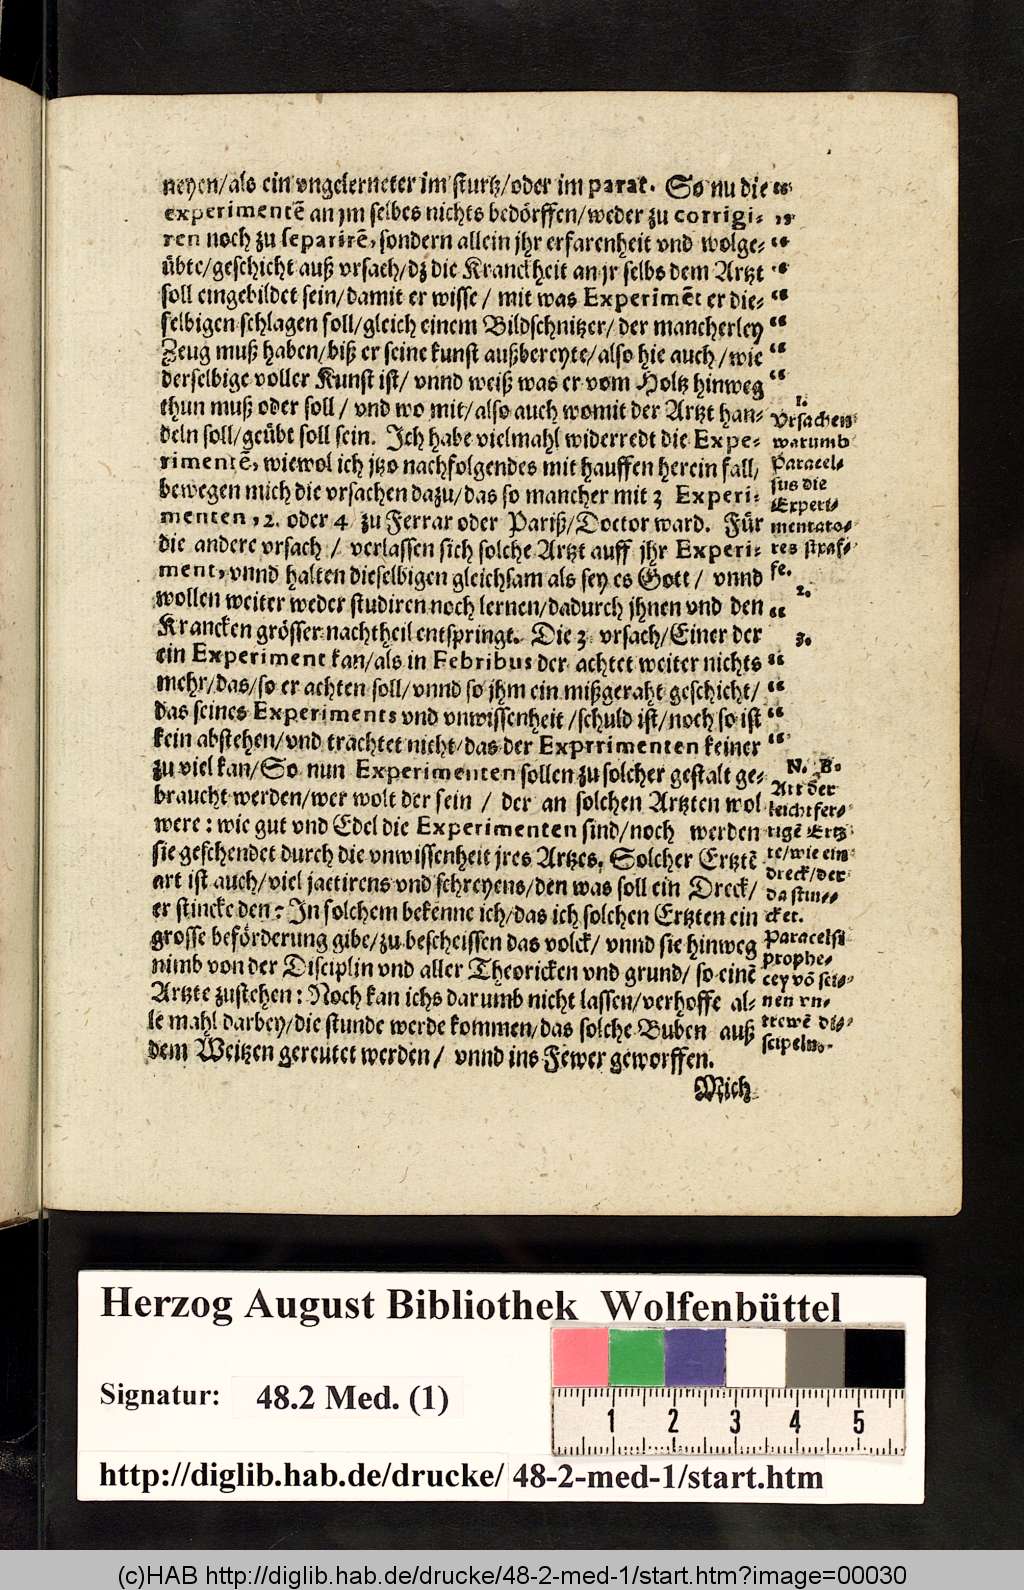 neyen/als ein vngelerneter im sturtz/oder im parat. So nu die
experimentẽ an jm selbes nichts bedörffen/weder zu corrigi-
ren noch zu separirẽ, sondern allein jhr erfarenheit vnd wolge-
übte/geschicht auß vrsach/dz die Kranckheit an jr selbs dem Artzt
soll eingebildet sein/damit er wisse/ mit was Experimẽt er die-
selbigen schlagen soll/gleich einem Bildschnitzer/ der mancherley
Zeug muß haben/biß er seine kunst außbereyte/also hie auch/wie
derselbige voller Kunst ist/ vnnd weiß was er vom Holtz hinweg
thun muß oder soll/ vnd wo mit/also auch womit der Artzt han-
deln soll/geübt soll sein. Ich habe vielmahl widerredt die Expe-
rimentẽ, wiewol ich jtzo nachfolgendes mit hauffen herein fall/
bewegen mich die vrsachen dazu/das so mancher mit 3 Experi-
menten, 2. oder 4 zu Ferrar oder Pariß/Doctor ward. Für
die andere vrsach/ verlassen sich solche Artzt auff jhr Experi-
ment, vnnd halten dieselbigen gleichsam als sey es Gott/ vnnd
wollen weiter weder studiren noch lernen/dadurch jhnen vnd den
Krancken grösser nachtheil entspringt. Die 3 vrsach/Einer der
ein Experiment kan/als in Febribus der achtet weiter nichts
mehr/das/so er achten soll/vnnd so jhm ein mißgeraht geschicht/
das seines Experiments vnd vnwissenheit/schuld ist/noch so ist
kein abstehen/vnd trachtet nicht/das der Exprrimenten keiner
zu viel kan/So nun Experimenten sollen zu solcher gestalt ge-
braucht werden/wer wolt der sein/ der an solchen Artzten wol
were: wie gut vnd Edel die Experimenten sind/noch werden
sie geschendet durch die vnwissenheit jres Artzes. Solcher Ertztẽ
art ist auch/viel jactirens vnd schreyens/den was soll ein Dreck/
er stincke den: In solchem bekenne ich/das ich solchen Ertzten ein
grosse beförderung gibe/zu bescheissen das volck/ vnnd sie hinweg
nimb von der Disciplin vnd aller Theoricken vnd grund/ so einẽ
Artzte zustehen: Noch kan ichs darumb nicht lassen/verhoffe al-
le mahl darbey/die stunde werde kommen/das solche Buben auß
dem Weitzen gereutet werden/ vnnd ins Fewer geworffen.
Mich
1.
Vrsachen
warumb
Paracel-
sus die
Experi-
mentato-
res straf-
fe.
2.
3.
N. B.
Art der
leichtfer-
tigẽ Ertz
te/wie ein
dreck/der
da stin-
cket.
Paracelsi
prophe-
cey võ sei-
nen vn-
trewẽ di-
scipeln.
Herzog August Bibliothek Wolfenbüttel
Signatur: 48.2 Med. (1)
1 2 3 4 5
http://diglib.hab.de/drucke/ 48-2-med-1/start.htm
(c)HAB http://diglib.hab.de/drucke/48-2-med-1/start.htm?image=00030